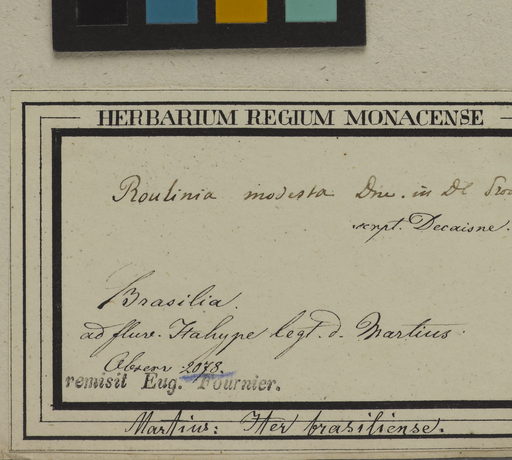 HERBARIUM REGIUM MONACENSE
Roulinia modesta Dne. in DC
script. Decaisne.
Brasilia.
ad fluv. Itahype legt. d. Martius.
Observ 2078.
remisit Eug. Fournier.
Martius: Iter brasiliense.